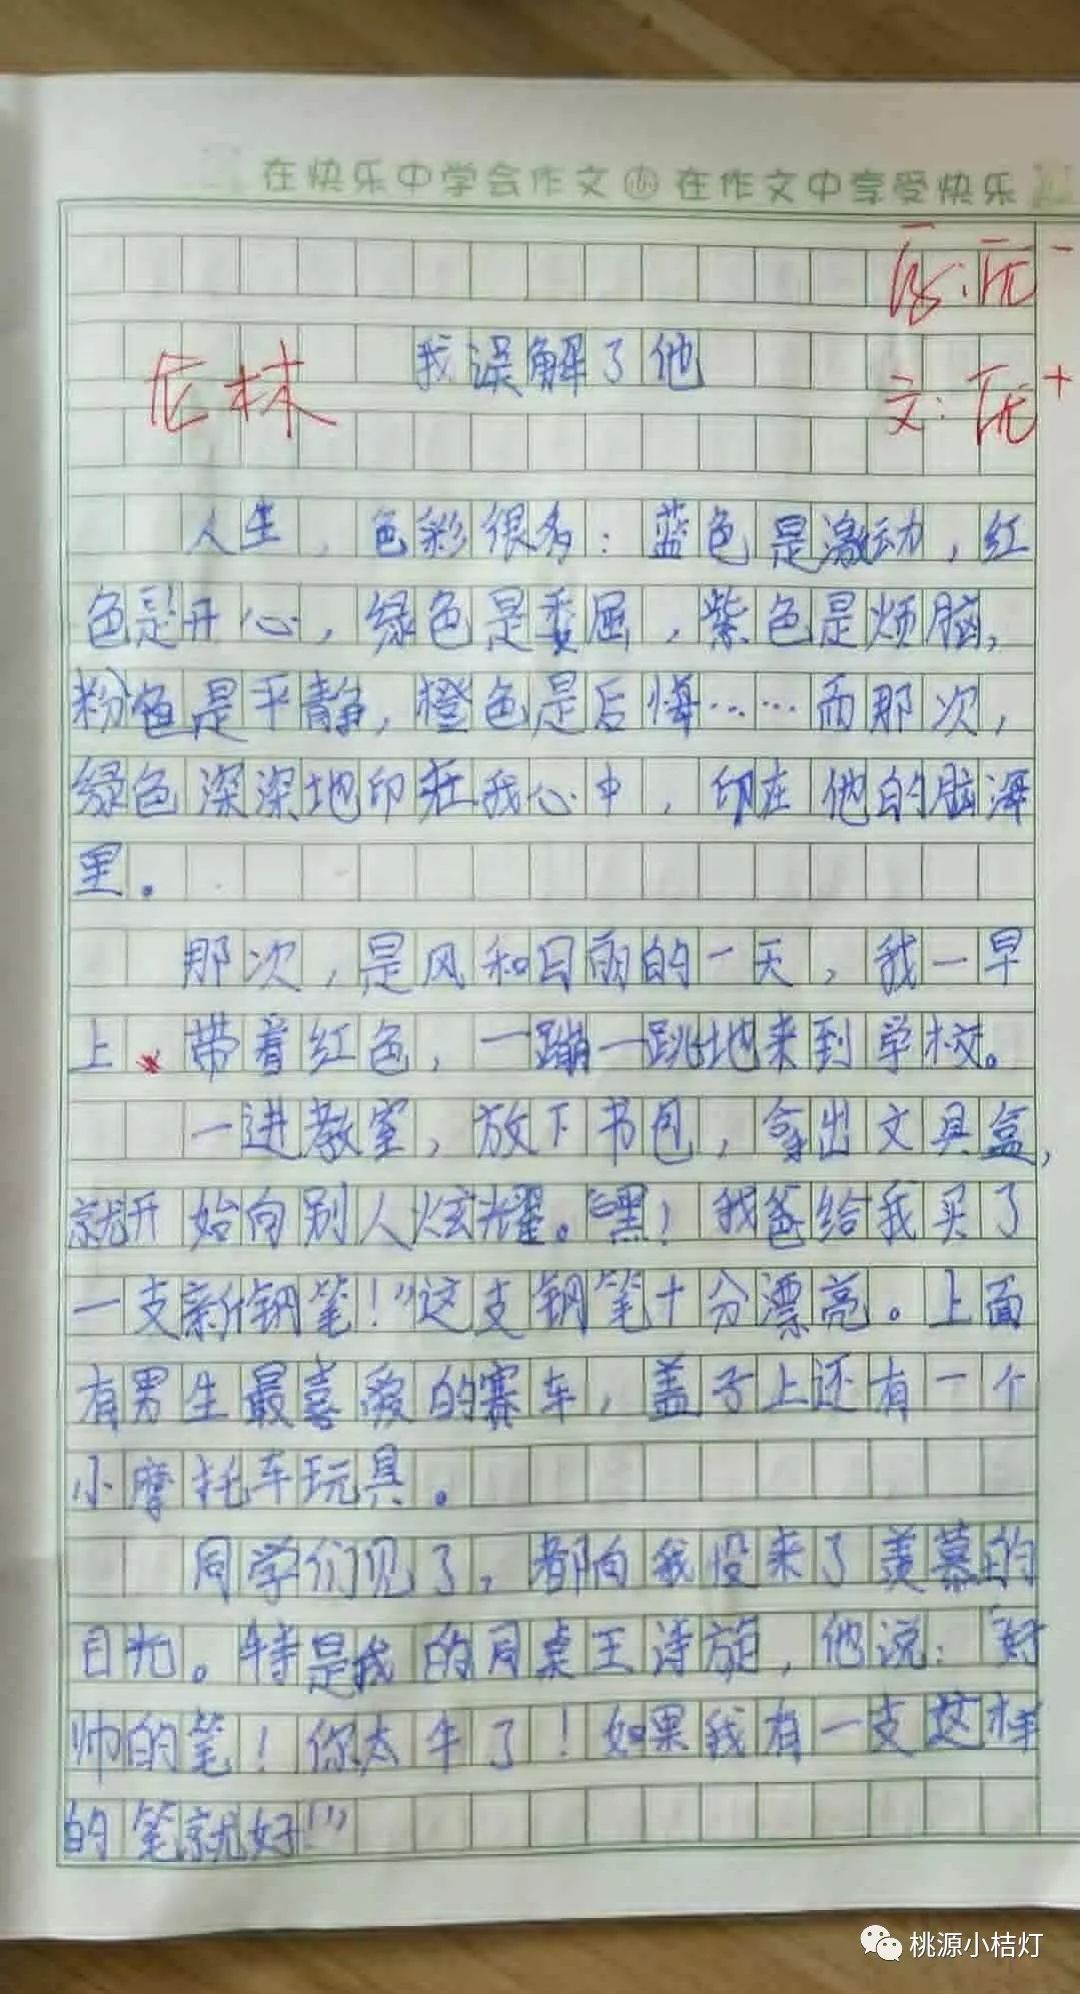 在快乐中学会作文 在作文中享受快乐
我误解了他
文:优+
人生，色彩很多：蓝色是激动，红
色是开心，绿色是委屈，紫色是烦脑，
粉色是平静，橙色是后悔……而那次，
绿色深深地印在我心中，印在他的脑海
里。
那次，是风和日丽的一天，我一早
上带着红色，一蹦一跳地来到学校。
一进教室，放下书包，拿出文具盒，
就开始向别人炫耀。“嘿！我爸给我买了
一支新钢笔！”这支钢笔十分漂亮。上面
有男生最喜爱的赛车，盖子上还有一个
小摩托车玩具。
同学们见了，都向我投来了羡慕的
目光。特是我的同桌王诗旋，他说：“好
帅的笔！你太牛了！如果我有一支这样
的笔就好！”
桃源小桔灯